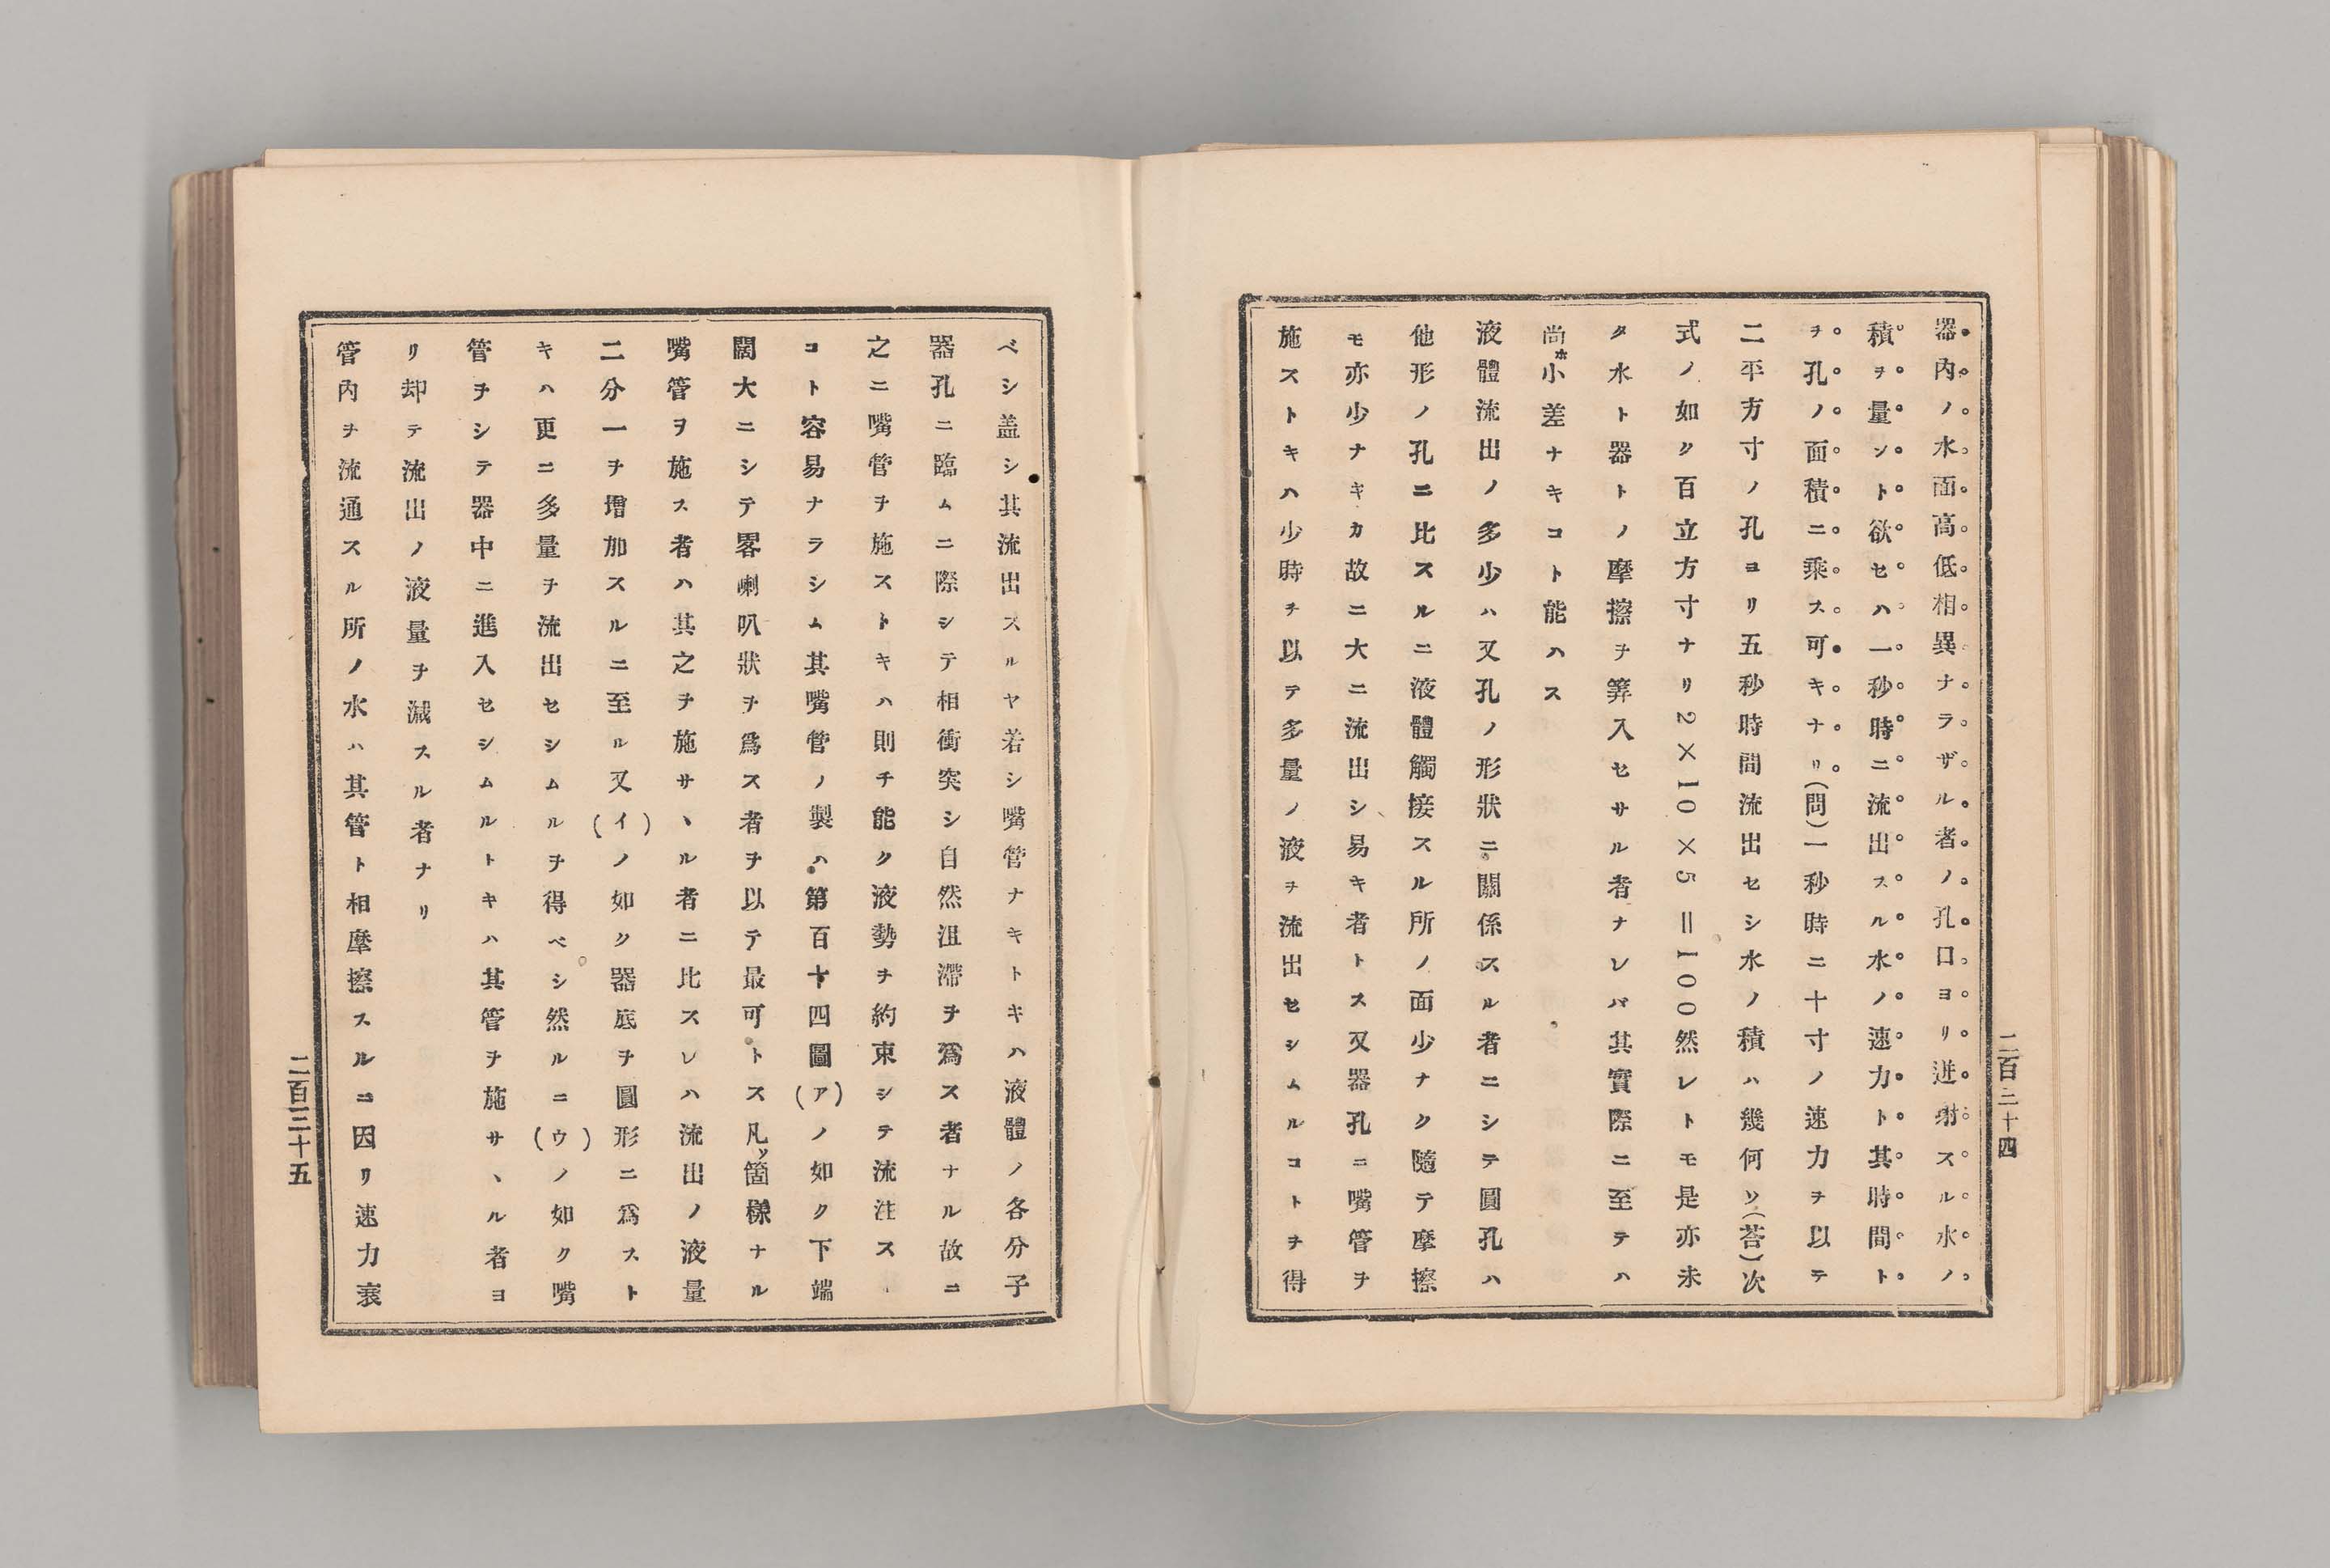 二百三十四
器內ノ水面高低相異ナラザル者ノ孔口ヨリ迸射スル水ノ
積ヲ量ント欲セハ一秒時ニ流出スル水ノ速力ト其時間ト
ヲ孔ノ面積ニ乘ス可キナリ(問)一秒時ニ十寸ノ速力ヲ以テ
二平方寸ノ孔ヨリ五秒時間流出セシ水ノ積ハ幾何ソ(荅)次
式ノ如ク百立方寸ナリ2×10×5=100然レトモ是亦未
タ水ト器トノ摩擦ヲ算入セサル者ナレバ其實際ニ至テハ
尚ホ小差ナキコト能ハス
液體流出ノ多少ハ又孔ノ形狀ニ關係スル者ニシテ圓孔ハ
他形ノ孔ニ比スルニ液體觸接スル所ノ面少ナク隨テ摩擦
モ亦少ナキカ故ニ大ニ流出シ易キ者トス又器孔ニ嘴管ヲ
施ストキハ少時ヲ以テ多量ノ液ヲ流出セシムルコトヲ得
ベシ盖シ其流出スルヤ若シ嘴管ナキトキハ液體ノ各分子
器孔ニ臨ムニ際シテ相衝突シ自然沮滯ヲ爲ス者ナル故ニ
之ニ嘴管ヲ施ストキハ則チ能ク液勢ヲ約束シテ流注ス
コト容易ナラシム其嘴管ノ製ハ第百十四圖(ア)ノ如ク下端
闊大ニシテ畧喇叭狀ヲ爲ス者ヲ以テ最可トス凡ソ箇樣ナル
嘴管ヲ施ス者ハ其之ヲ施サヽル者ニ比スレハ流出ノ液量
二分一ヲ增加スルニ至ル又(イ)ノ如ク器底ヲ圓形ニ爲スト
キハ更ニ多量ヲ流出セシムルヲ得ベシ然ルニ(ウ)ノ如ク嘴
管ヲシテ器中ニ進入セシムルトキハ其管ヲ施サヽル者ヨ
リ却テ流出ノ液量ヲ減スル者ナリ
管內ヲ流通スル所ノ水ハ其管ト相摩擦スルニ因リ速力衰
二百三十五